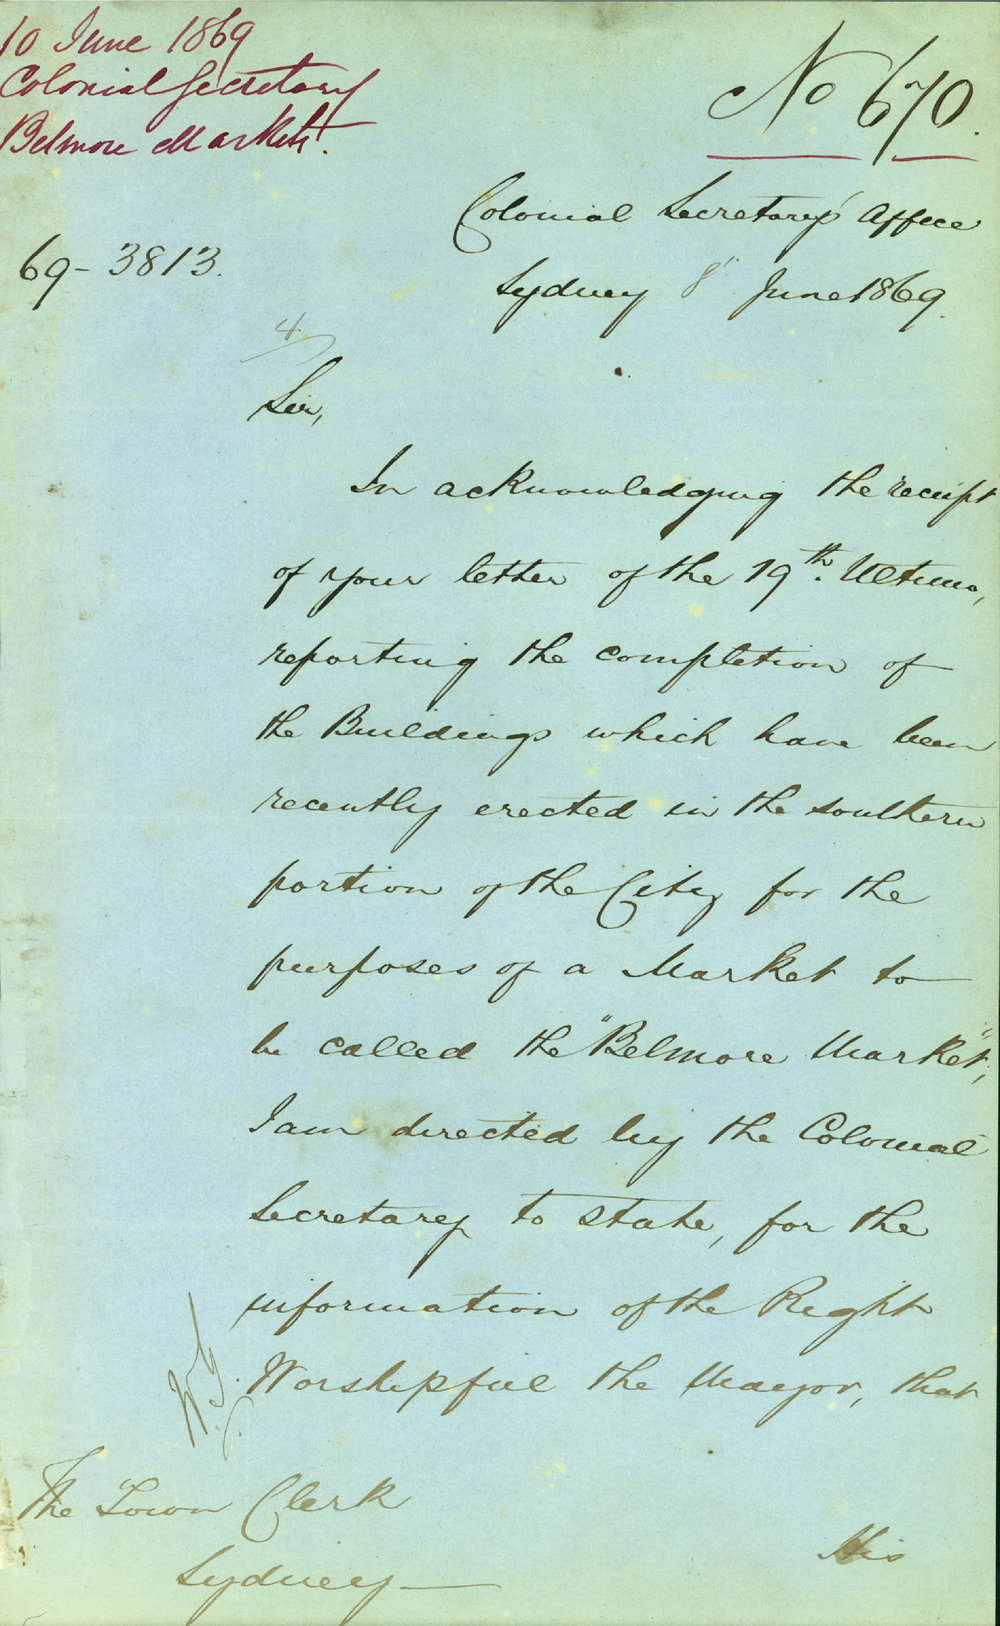 10 June 1869
Colonial Secretary
Belmore Market.
No 670.
69-3813.
Colonial Secretary's Office
Sydney 8th June 1869.
4
Sir,
In acknowledging the receipt
of your letter of the 19th. Ultimo,
reporting the completion of
the Buildings which have been
recently erected in the southern
portion of the City for the
purposes of a Market to
be called the "Belmore Market",
I am directed by the Colonial
Secretary to state, for the
information of the Right
Worshipful the Mayor, that
The Town Clerk
Sydney
His